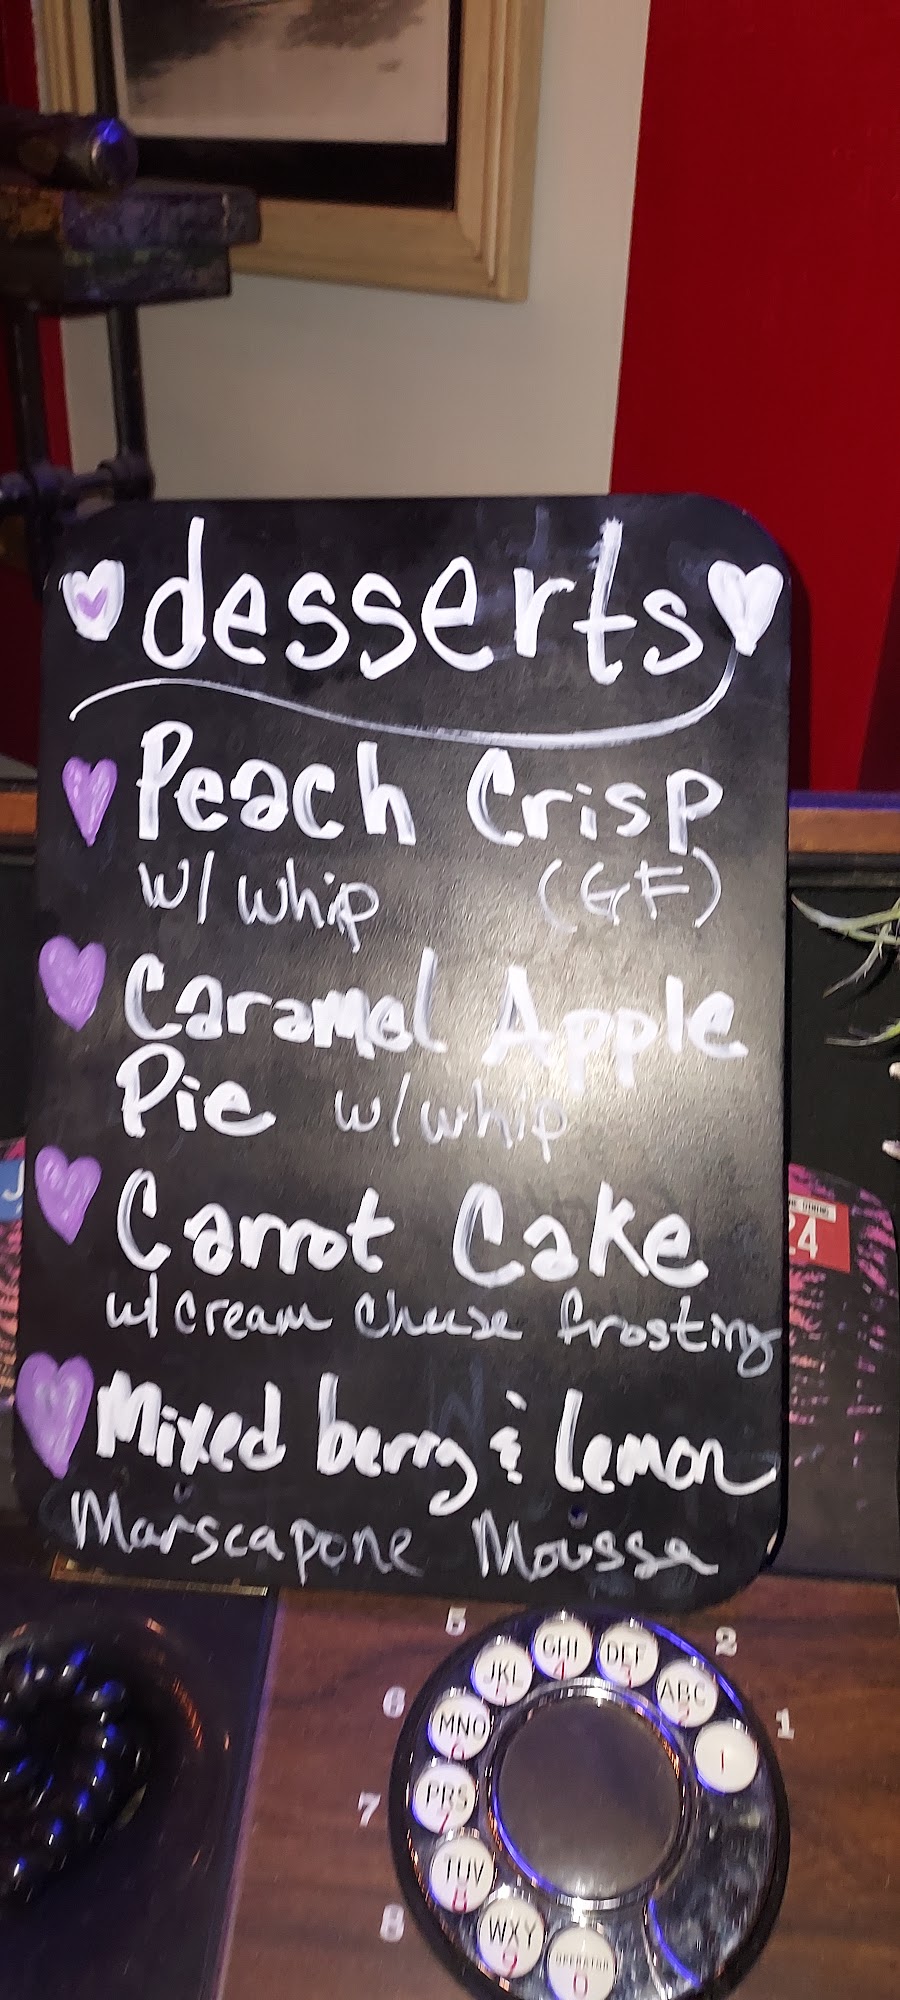 desserts
Peach Crisp
w/ whip (GF)
Caramel Apple
Pie w/ whip
Carrot Cake
w/ cream cheese frosting
Mixed berry & lemon
Marscapone Mousse
24
5
2
6
1
7
8
GHI
4
DEF
3
JKL
5
ABC
2
MNO
6
1
PRS
7
TUV
8
WXY
9
OPERATOR
0